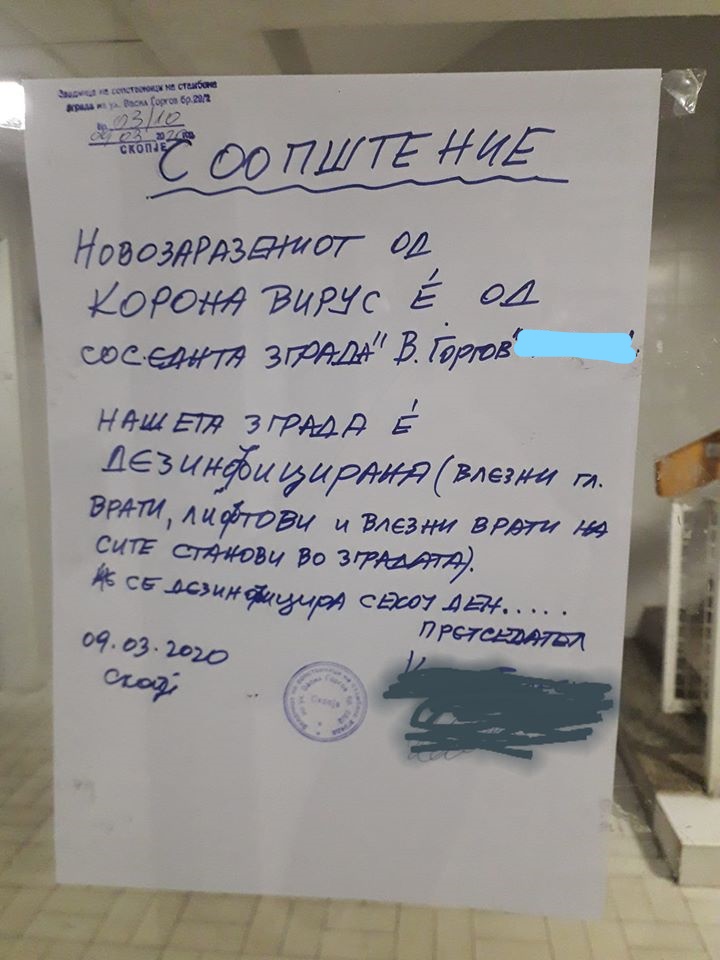 Заедница на сопственици на станбена
зграда на ул. Васил Ѓоргов бр.29/2
Бр. 03/10
09 03 2020 год.
СКОПЈЕ
СООПШТЕНИЕ
НОВОЗАРАЗЕНИОТ ОД
КОРОНА ВИРУС Е́ ОД
СОСЕДНТА ЗГРАДА" В. Ѓоргов"
НАШЕТА ЗГРАДА Е́
ДЕЗИНФИЦИРАНА (ВЛЕЗНИ ГЛ.
ВРАТИ, ЛИФТОВИ И ВЛЕЗНИ ВРАТИ НА
СИТЕ СТАНОВИ ВО ЗГРАДАТА).
СЕ ДЕЗИНФИЦИРА СЕКОЈ ДЕН.....
ПРЕТСЕДАТЕЛ
09.03.2020
Скопје
Скопје